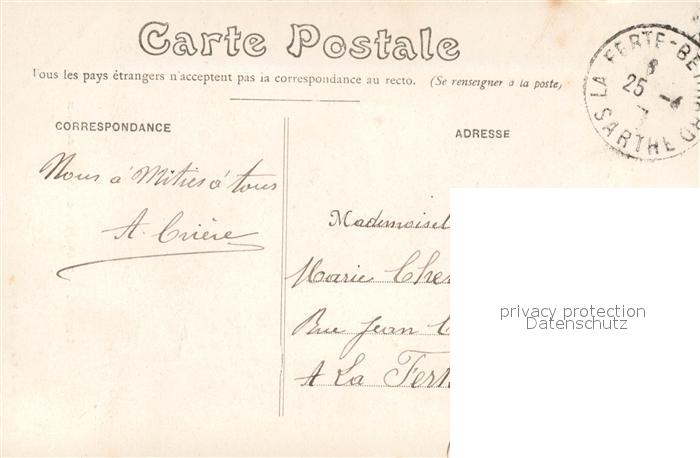 Carte Postale
Tous les pays étrangers n'acceptent pas la correspondance au recto. (Se renseigner à la poste)
LA FERTE-BE
25
SARTHE
CORRESPONDANCE
ADRESSE
Nous à tous
A. Crière
Mademoisel
Marie Che
Rue Jean
A La Fert
privacy protection
Datenschutz